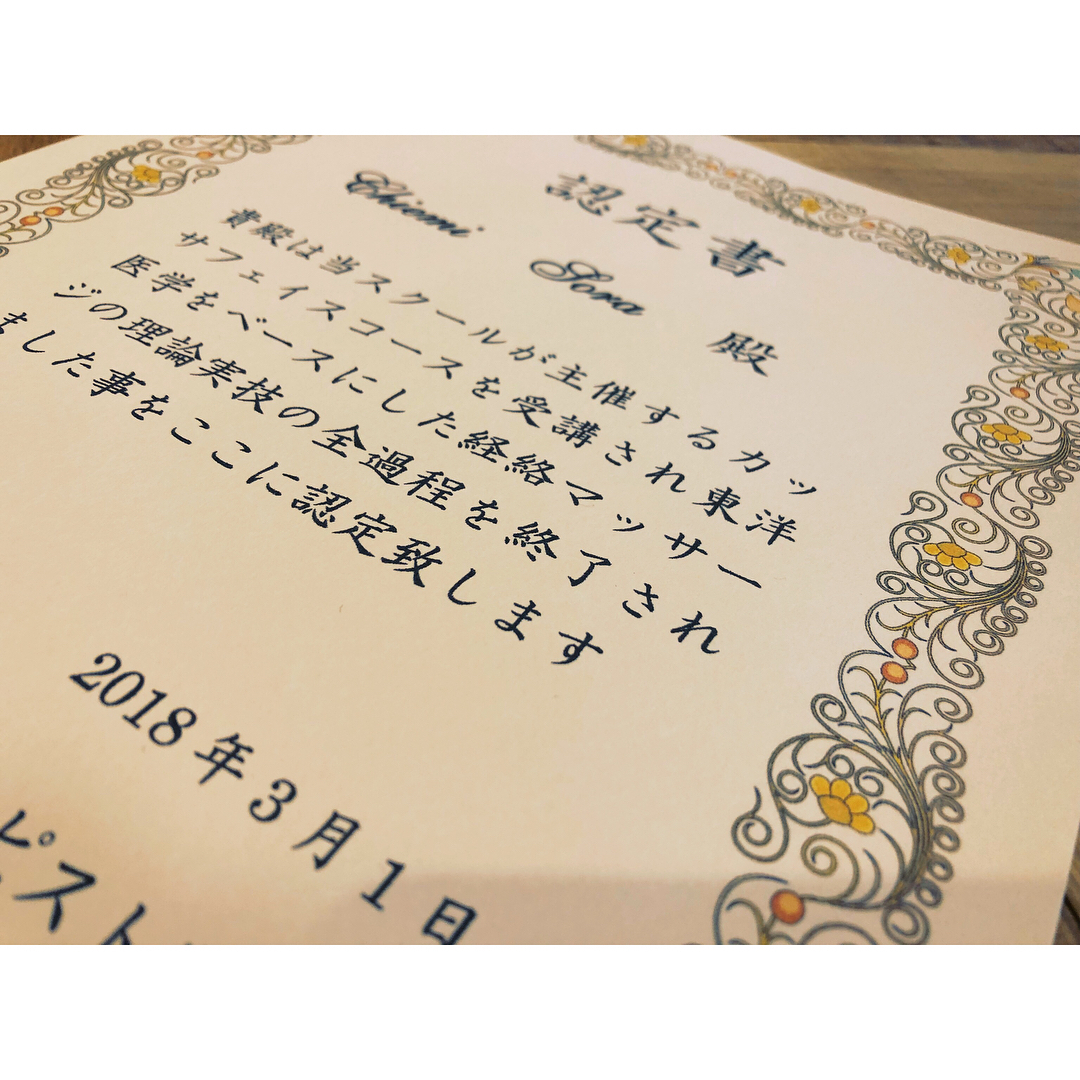 認定書
Chiemi Sora 殿
貴殿は当スクールが主催するカッ
サフェイスコースを受講され東洋
医学をベースにした経絡マッサー
ジの理論実技の全過程を終了され
ました事をここに認定致します
2018年3月1日
ピスト